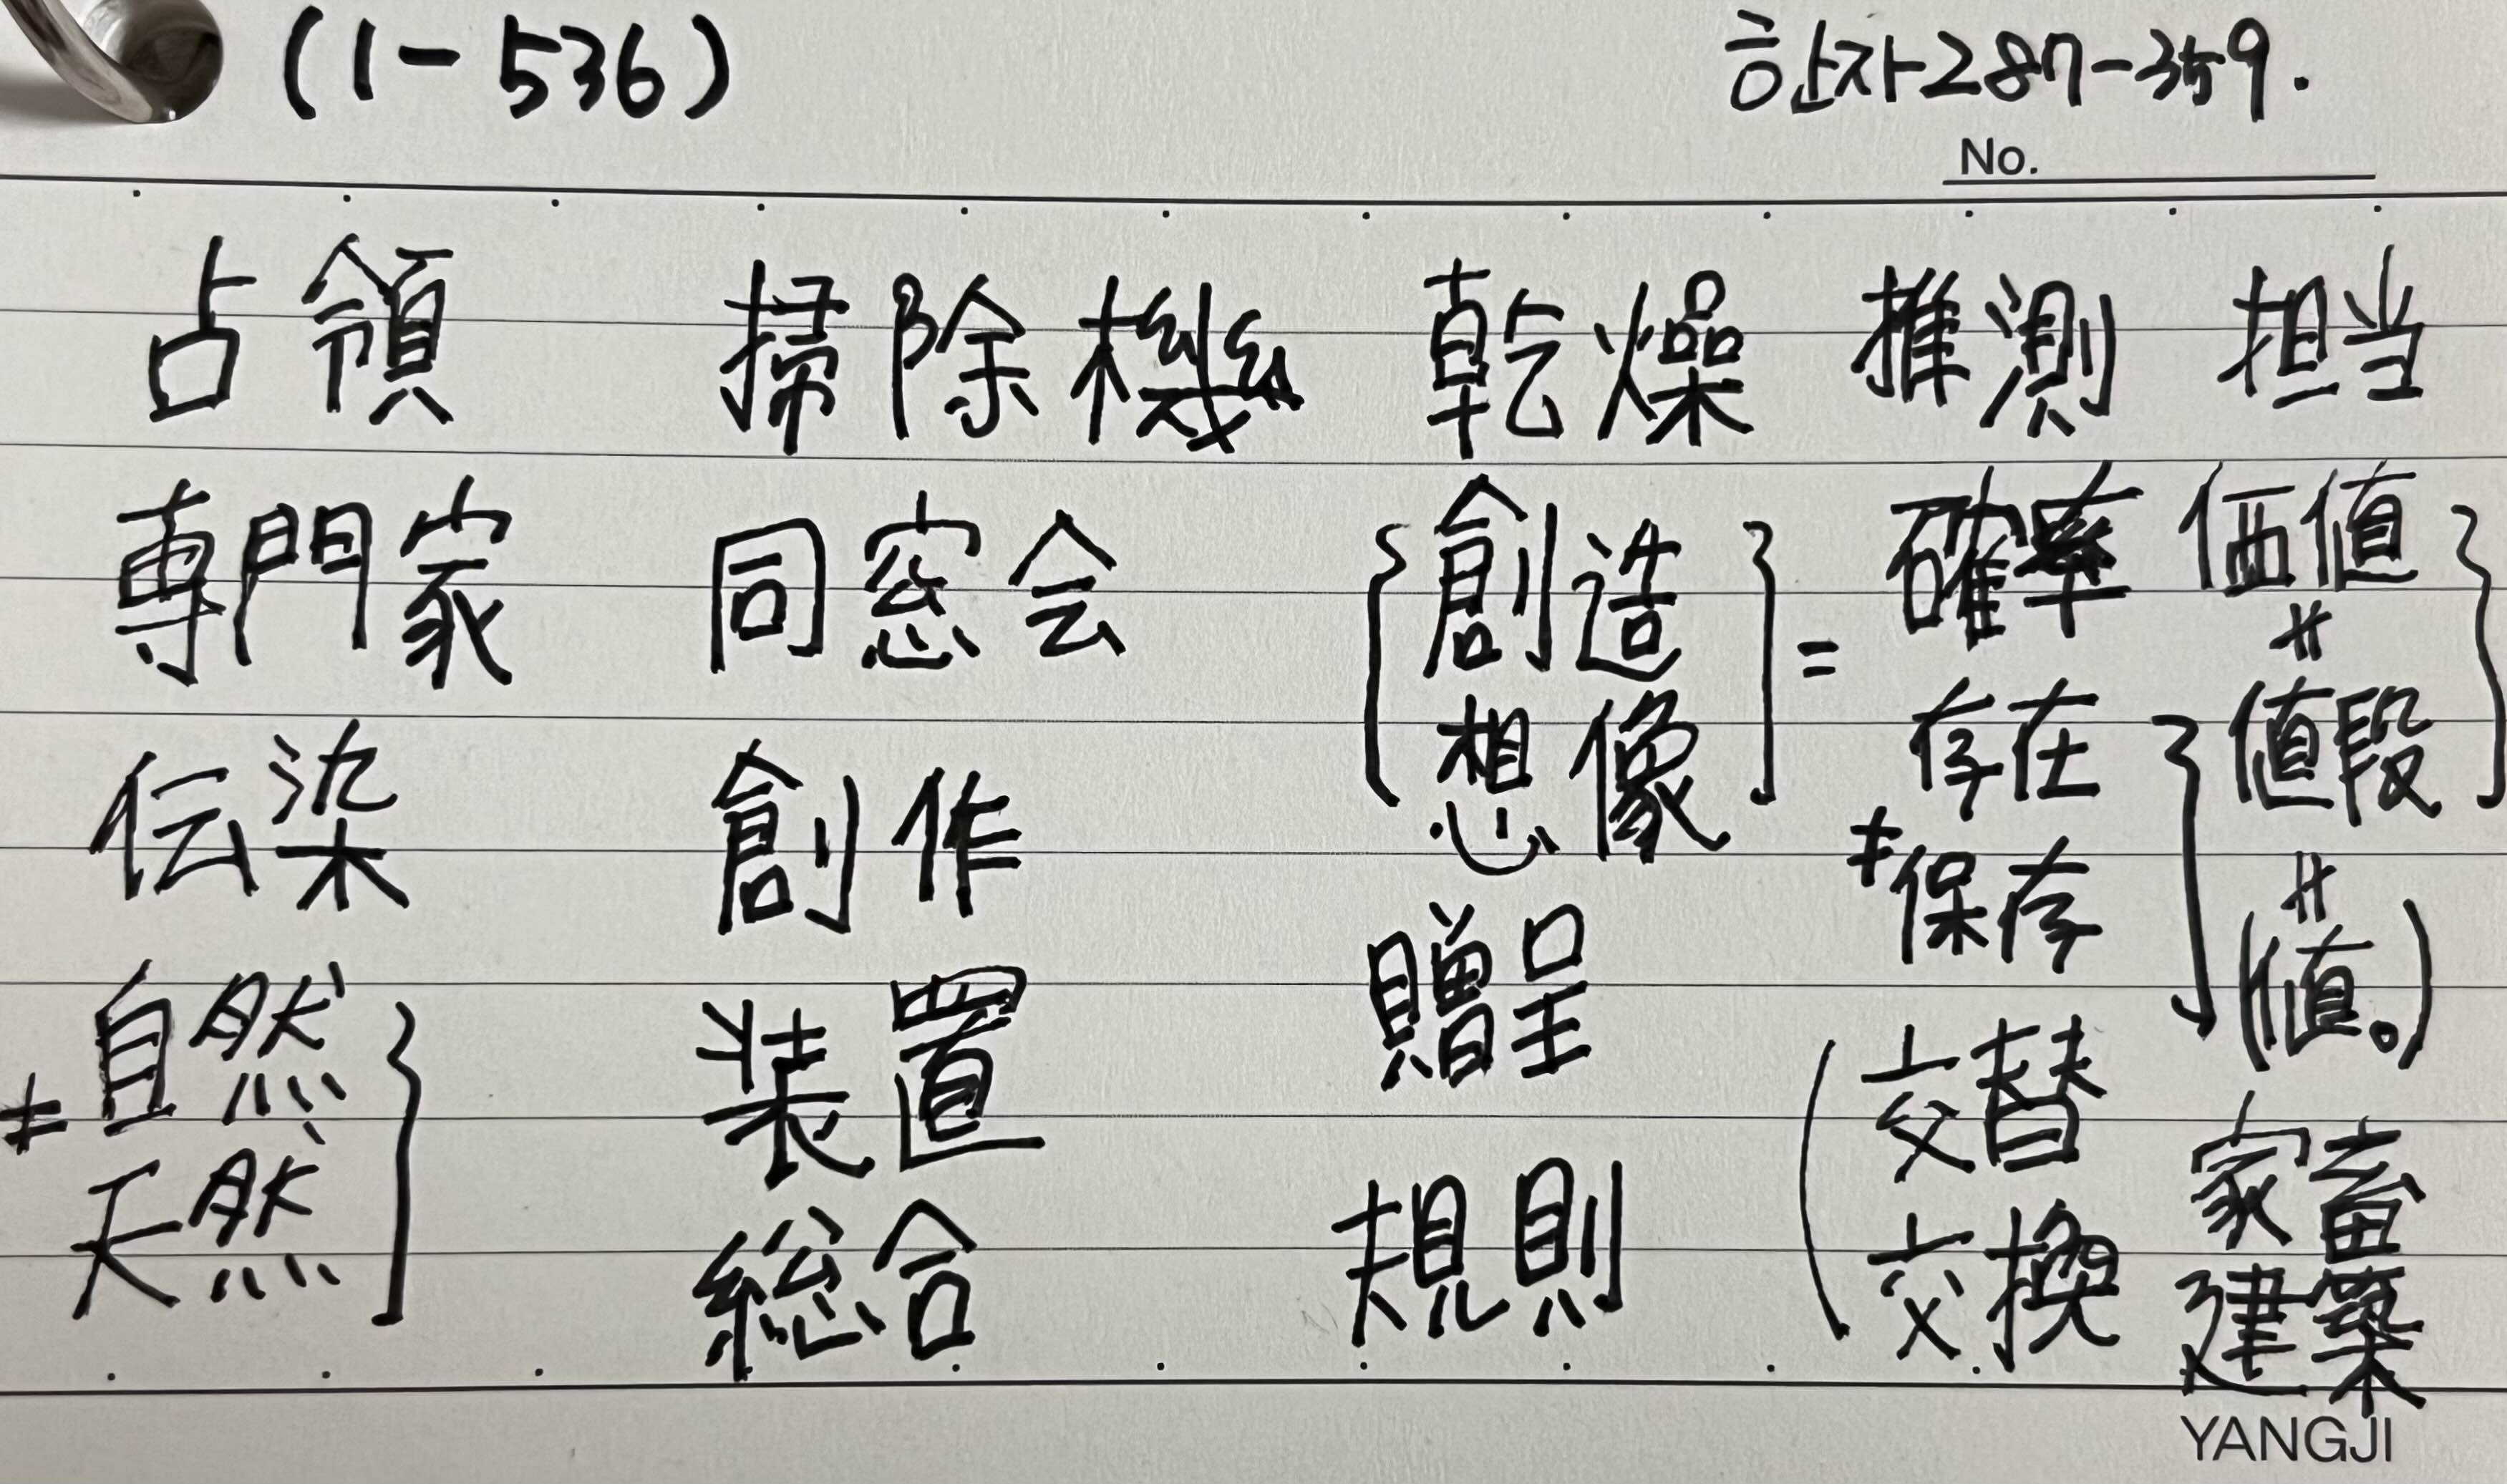 (1-536) 한자-287-359.
No.
占領 掃除機 乾燥 推測 担当
専門家 同窓会 { 創造 } = 確率 価値 }
想像 存在 } 値段
伝染 創作 ≠保存 (値。)
自然 } 装置 贈呈 ( 交替 家畜
≠天然 総合 規則 交換 建築
YANGJI